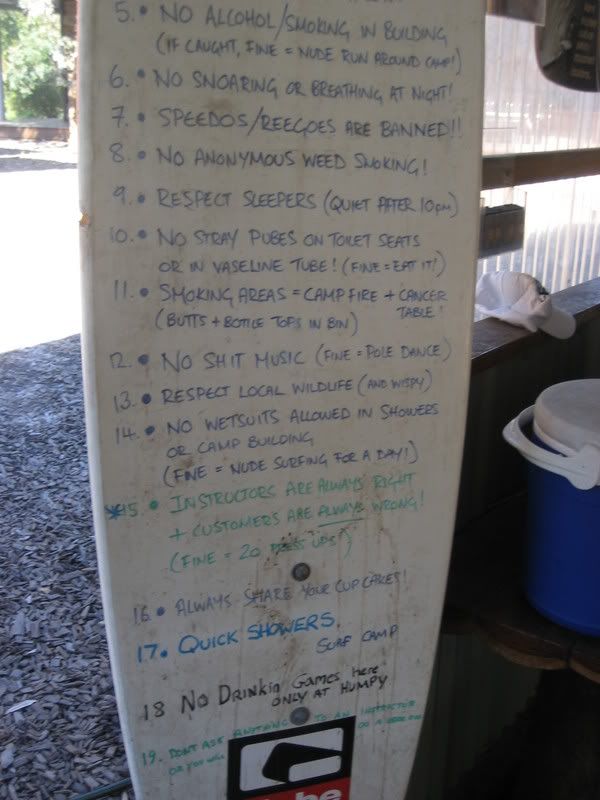 5. • NO ALCOHOL/SMOKING IN BUILDING
(IF CAUGHT, FINE = NUDE RUN AROUND CAMP!)
6. • NO SNOARING OR BREATHING AT NIGHT!
7. • SPEEDOS/REEGOES ARE BANNED!!
8. • NO ANONYMOUS WEED SMOKING!
9. • RESPECT SLEEPERS (QUIET AFTER 10pm)
10. • NO STRAY PUBES ON TOILET SEATS
OR IN VASELINE TUBE! (FINE = EAT IT!)
11. • SMOKING AREAS = CAMP FIRE + CANCER
TABLE!
(BUTTS + BOTTLE TOPS IN BIN)
12. • NO SHIT MUSIC (FINE = POLE DANCE)
13. • RESPECT LOCAL WILDLIFE (AND WISPY)
14. • NO WETSUITS ALLOWED IN SHOWERS
OR CAMP BUILDING
(FINE = NUDE SURFING FOR A DAY!)
*15 • INSTRUCTORS ARE ALWAYS RIGHT
+ CUSTOMERS ARE ALWAYS WRONG!
(FINE = 20 PRESS UPS!)
16. • ALWAYS SHARE YOUR CUP CAKES!
17. • QUICK SHOWERS
SURF CAMP
18 No Drinkin Games here
ONLY AT HUMPY
19. DONT ASK ANYTHING TO AN INSTRUCTOR
OR YOU WILL DO A